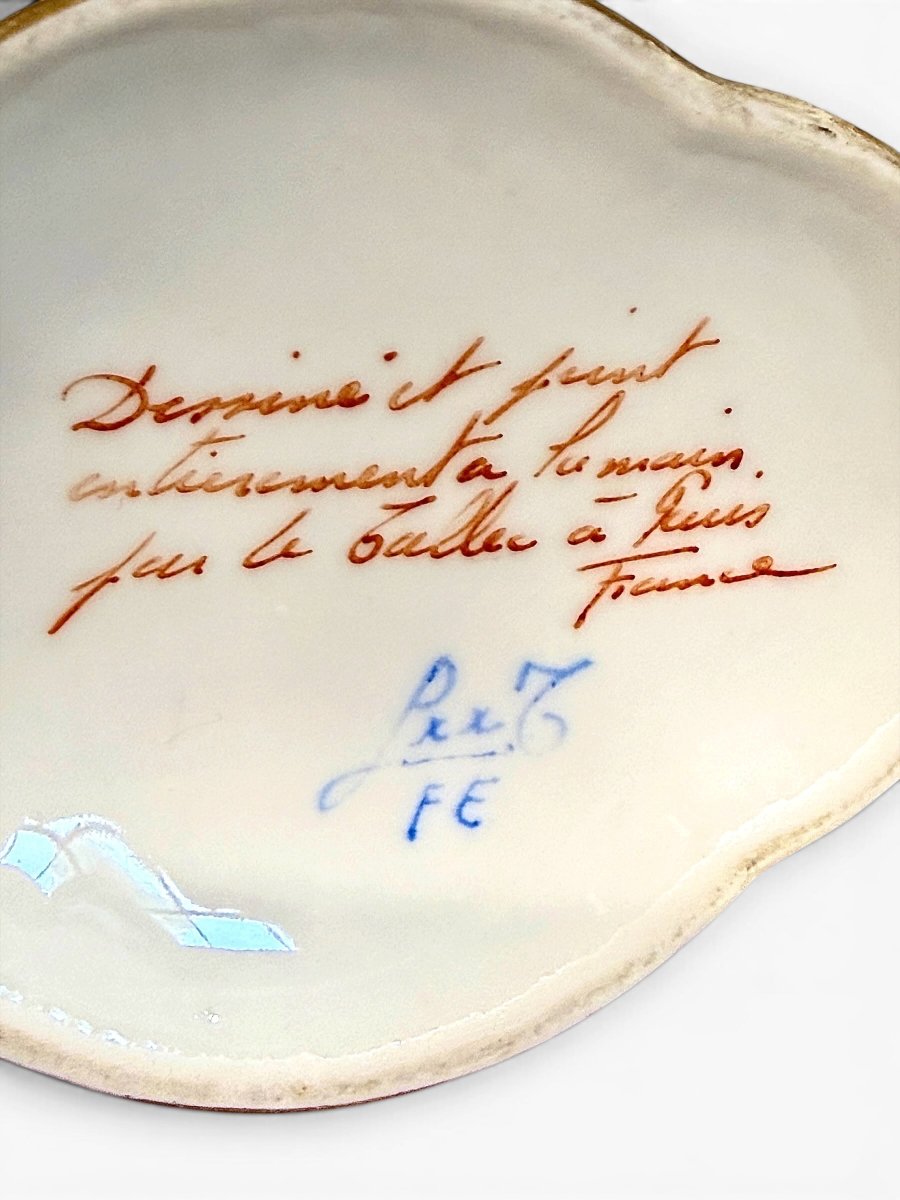 Dessiné et peint
entièrement à la main.
par le Tallec à Paris
France
LxxT
FE